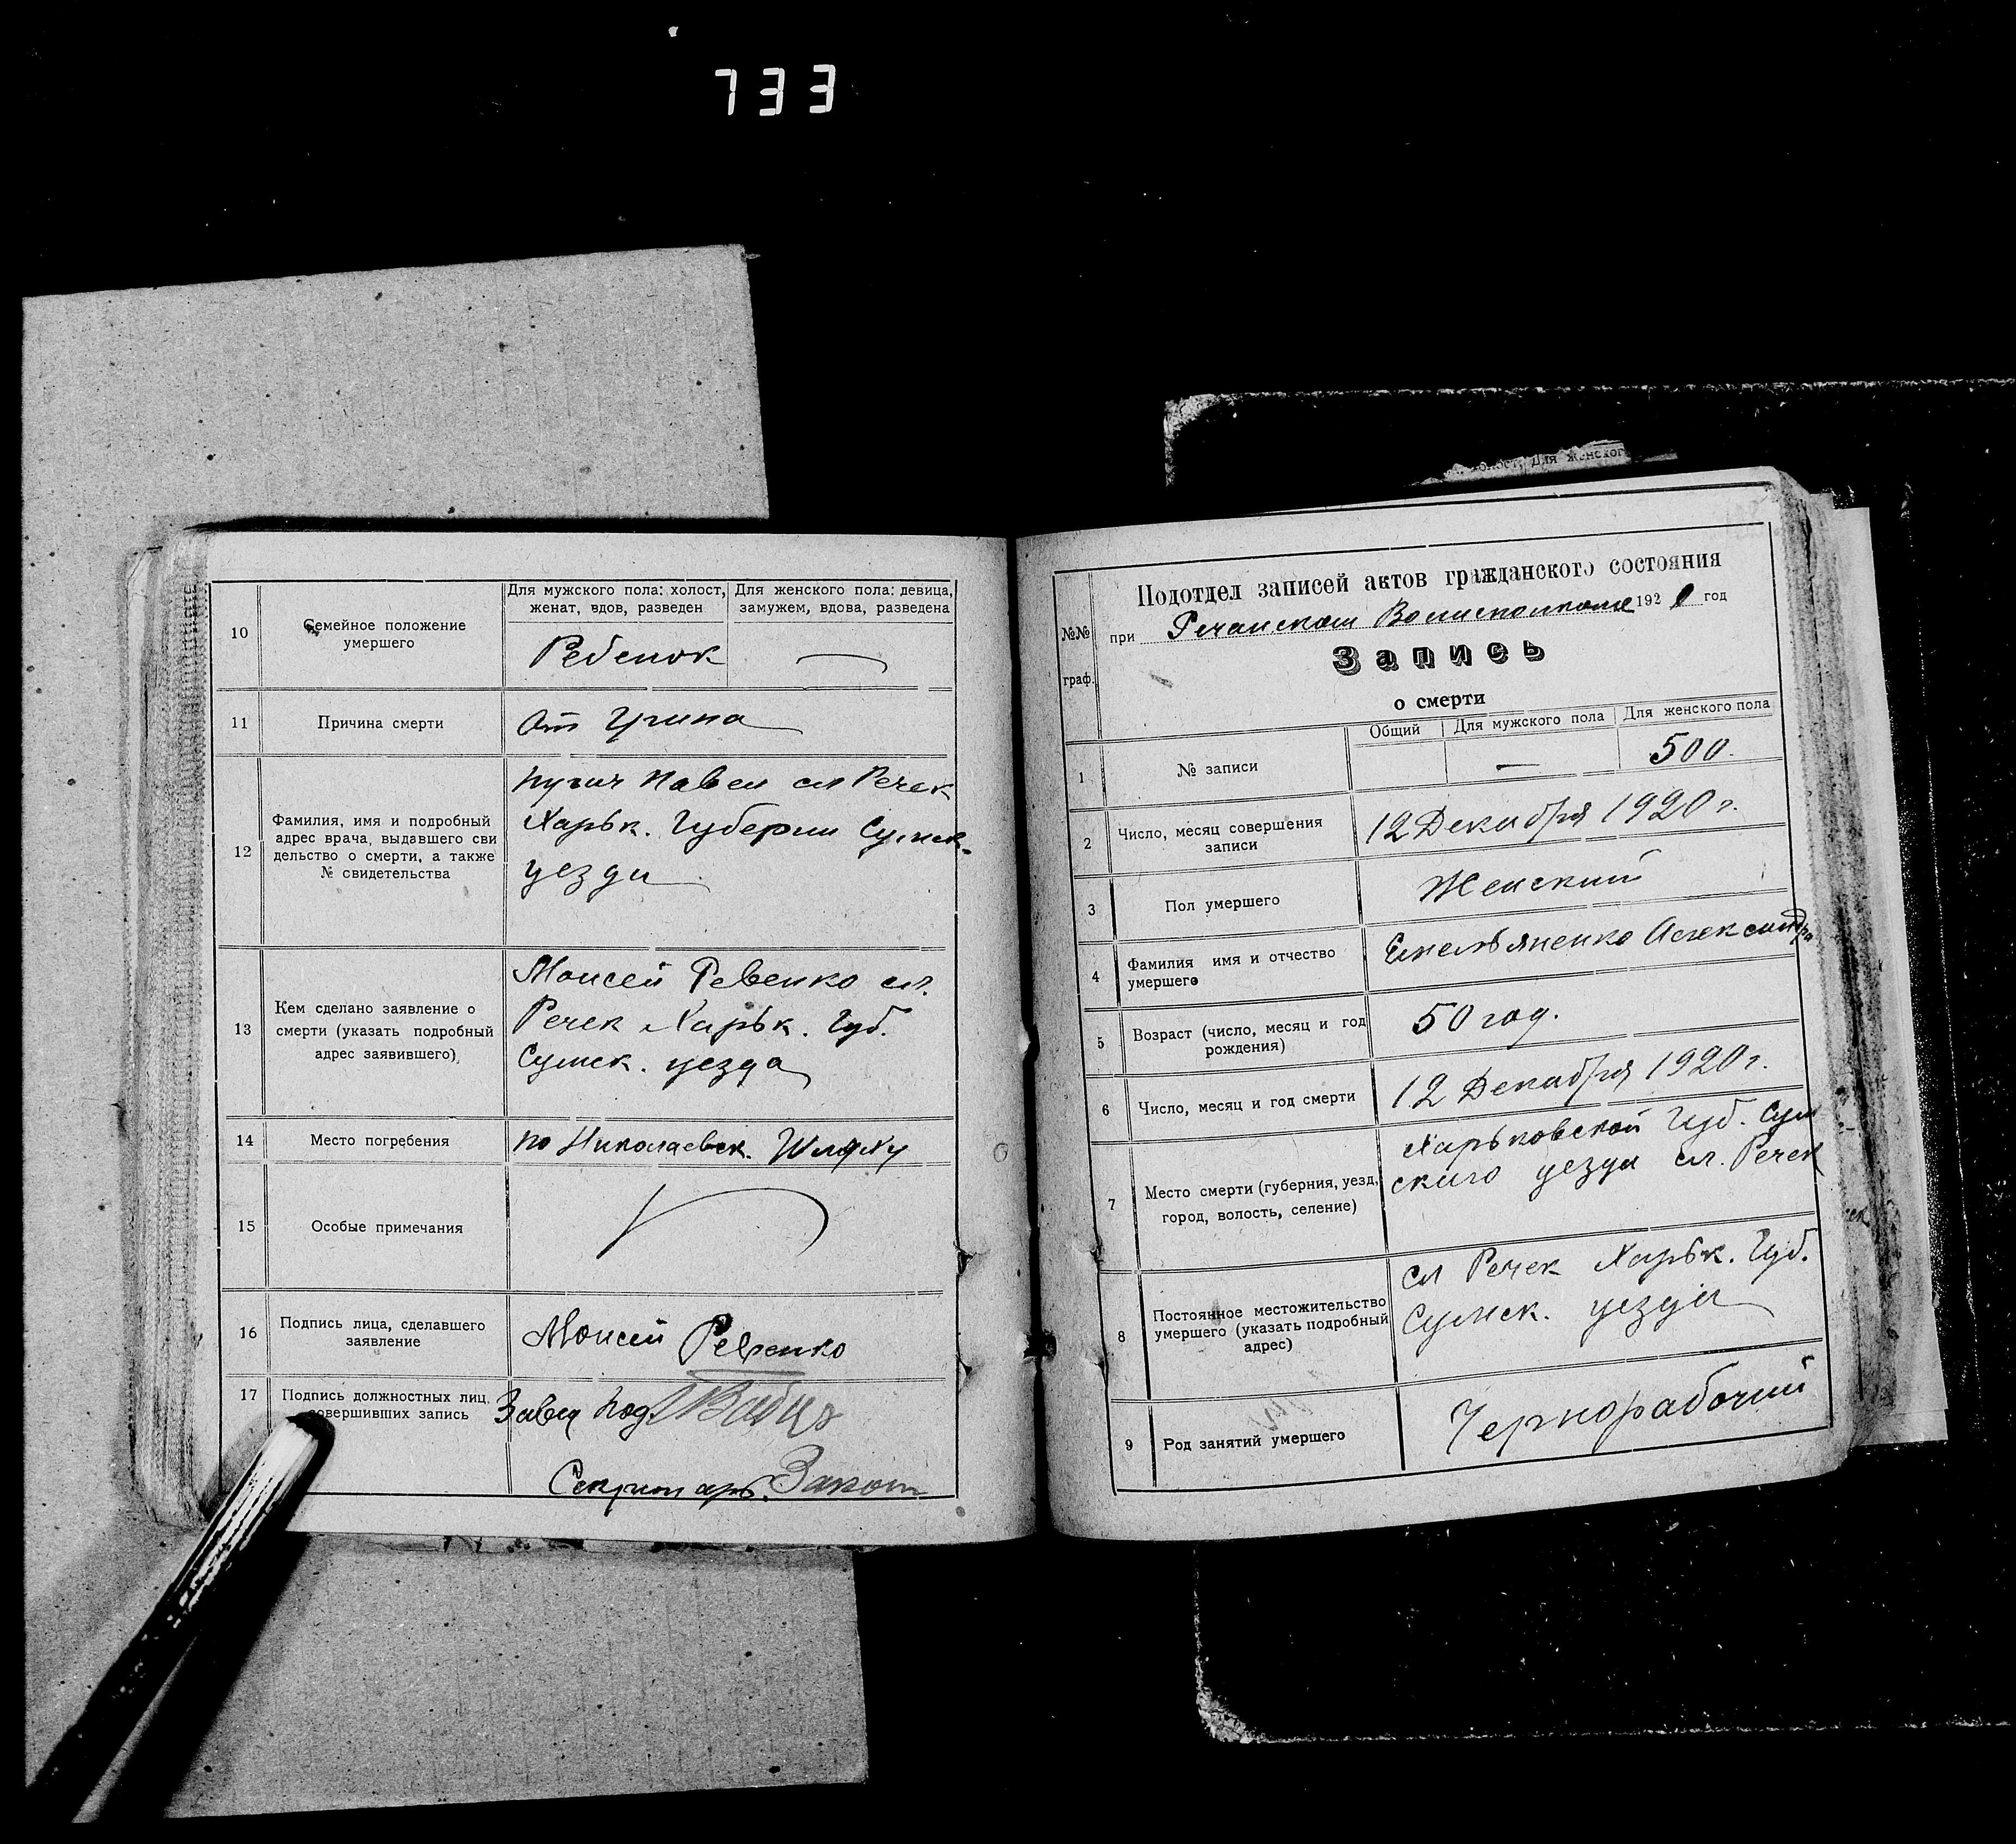 733
10
Семейное положение
умершего
Для мужского пола: холост,
женат, вдов, разведен
Для женского пола: девица,
замужем, вдова, разведена
Ребенок
—
11
Причина смерти
От
12
Фамилия, имя и подробный
адрес врача, выдавшего сви
дельство о смерти, а также
№ свидетельства
Павел сл Речек
Харьк. Губернии Сумск-
уезда
13
Кем сделано заявление о
смерти (указать подробный
адрес заявившего)
Моисей Ревенко сл.
Речек Харьк. Губ.
Сумск. уезда
14
Место погребения
по Николаевск. Шляху
15
Особые примечания
16
Подпись лица, сделавшего
заявление
Моисей Ревенко
17
Подпись должностных лиц,
совершивших запись
Завед Под.
Секретарь.
олост, Для женског
№№
граф.
Подотдел записей актов гражданского состояния
при Речанском Волисполкоме 1920 год
Запись
о смерти
Общий
Для мужского пола
Для женского пола
1
№ записи
—
500.
2
Число, месяц совершения
записи
12 Декабря 1920 г.
3
Пол умершего
Женский
4
Фамилия имя и отчество
умершего
Емельяненко Александра
5
Возраст (число, месяц и год
рождения)
50 год.
6
Число, месяц и год смерти
12 Декабря 1920 г.
7
Место смерти (губерния, уезд,
город, волость, селение)
Харьковской Губ. Сум
ского уезда сл. Речек
8
Постоянное местожительство
умершего (указать подробный
адрес)
сл Речек Харьк. Губ.
Сумск. уезда
9
Род занятий умершего
Чернорабочий